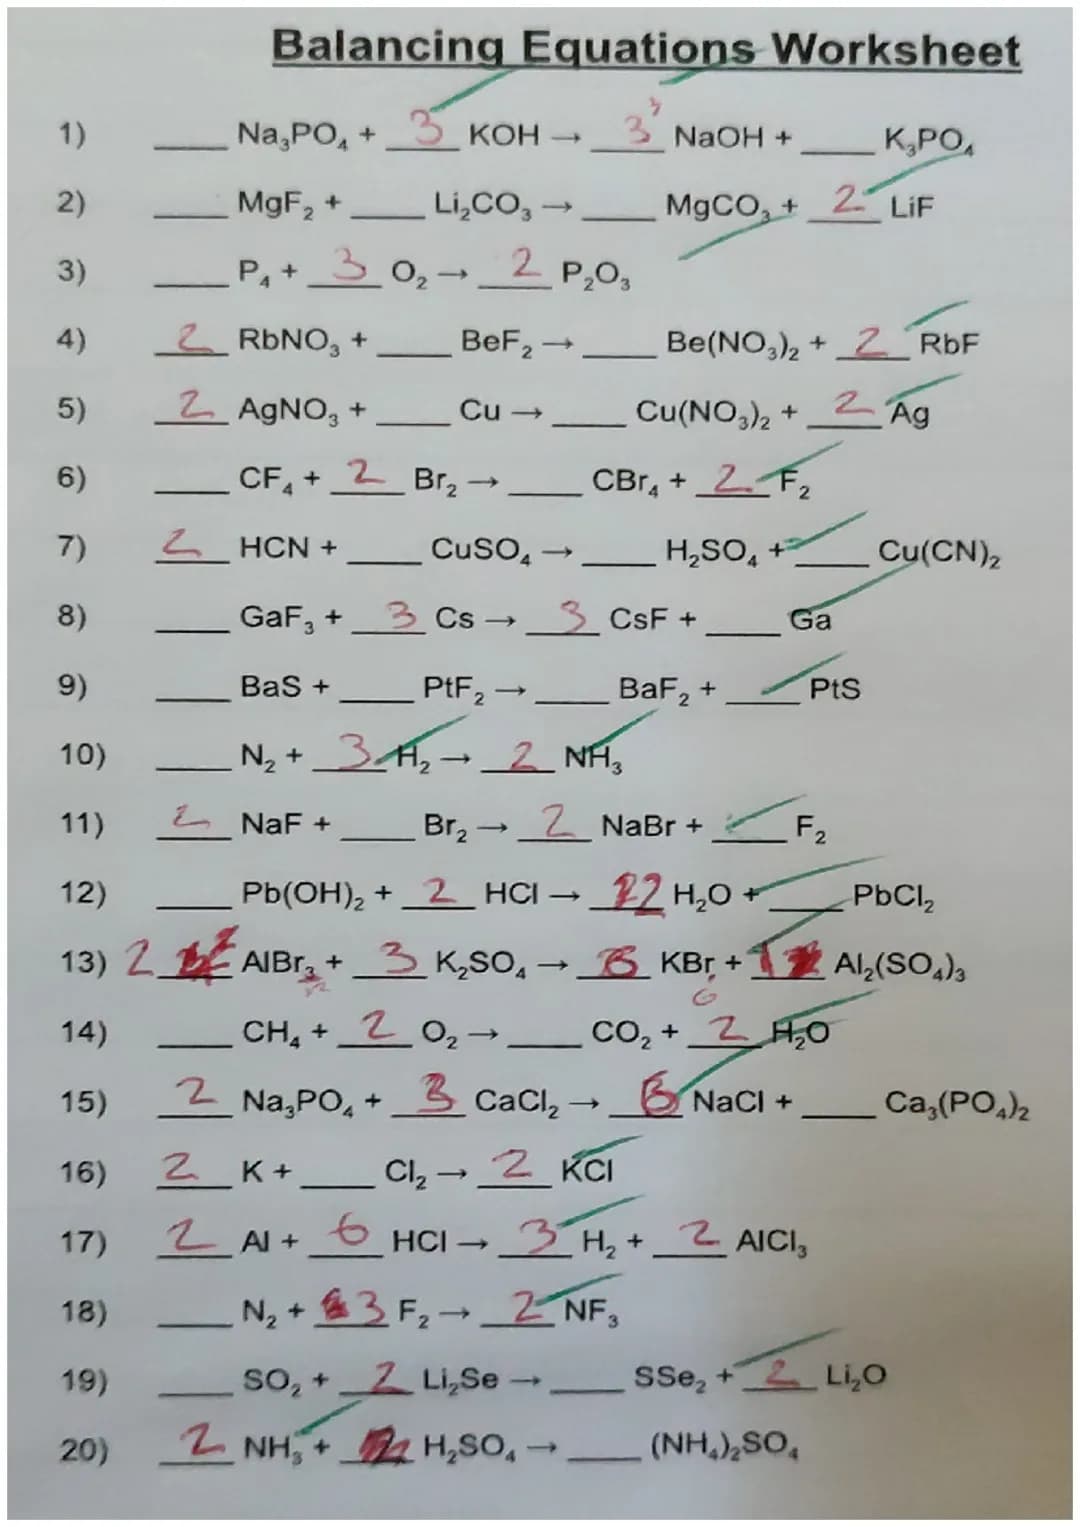 Balancing Equations Worksheet
1) ____ Na₃PO₄ + 3 KOH → 3 NaOH + ____ K₃PO₄
2) ____ MgF₂ + ____ Li₂CO₃ → ____ MgCO₃ + 2 LiF
3) ____ P₄ + 3 O₂ → 2 P₂O₃
4) 2 RbNO₃ + ____ BeF₂ → ____ Be(NO₃)₂ + 2 RbF
5) 2 AgNO₃ + ____ Cu → ____ Cu(NO₃)₂ + 2 Ag
6) ____ CF₄ + 2 Br₂ → ____ CBr₄ + 2 F₂
7) 2 HCN + ____ CuSO₄ → ____ H₂SO₄ + ____ Cu(CN)₂
8) ____ GaF₃ + 3 Cs → 3 CsF + ____ Ga
9) ____ BaS + ____ PtF₂ → ____ BaF₂ + ____ PtS
10) ____ N₂ + 3 H₂ → 2 NH₃
11) 2 NaF + ____ Br₂ → 2 NaBr + ____ F₂
12) ____ Pb(OH)₂ + 2 HCl → 2 H₂O + ____ PbCl₂
13) 2 AlBr₃ + 3 K₂SO₄ → KBr + 1 Al₂(SO₄)₃
6
14) ____ CH₄ + 2 O₂ → ____ CO₂ + 2 H₂O
15) 2 Na₃PO₄ + 3 CaCl₂ → 6 NaCl + ____ Ca₃(PO₄)₂
16) 2 K + ____ Cl₂ → 2 KCl
17) 2 Al + 6 HCl → 3 H₂ + 2 AlCl₃
18) ____ N₂ + 3 F₂ → 2 NF₃
19) ____ SO₂ + 2 Li₂Se → ____ SSe₂ + 2 Li₂O
20) 2 NH₃ + ____ H₂SO₄ → ____ (NH₄)₂SO₄